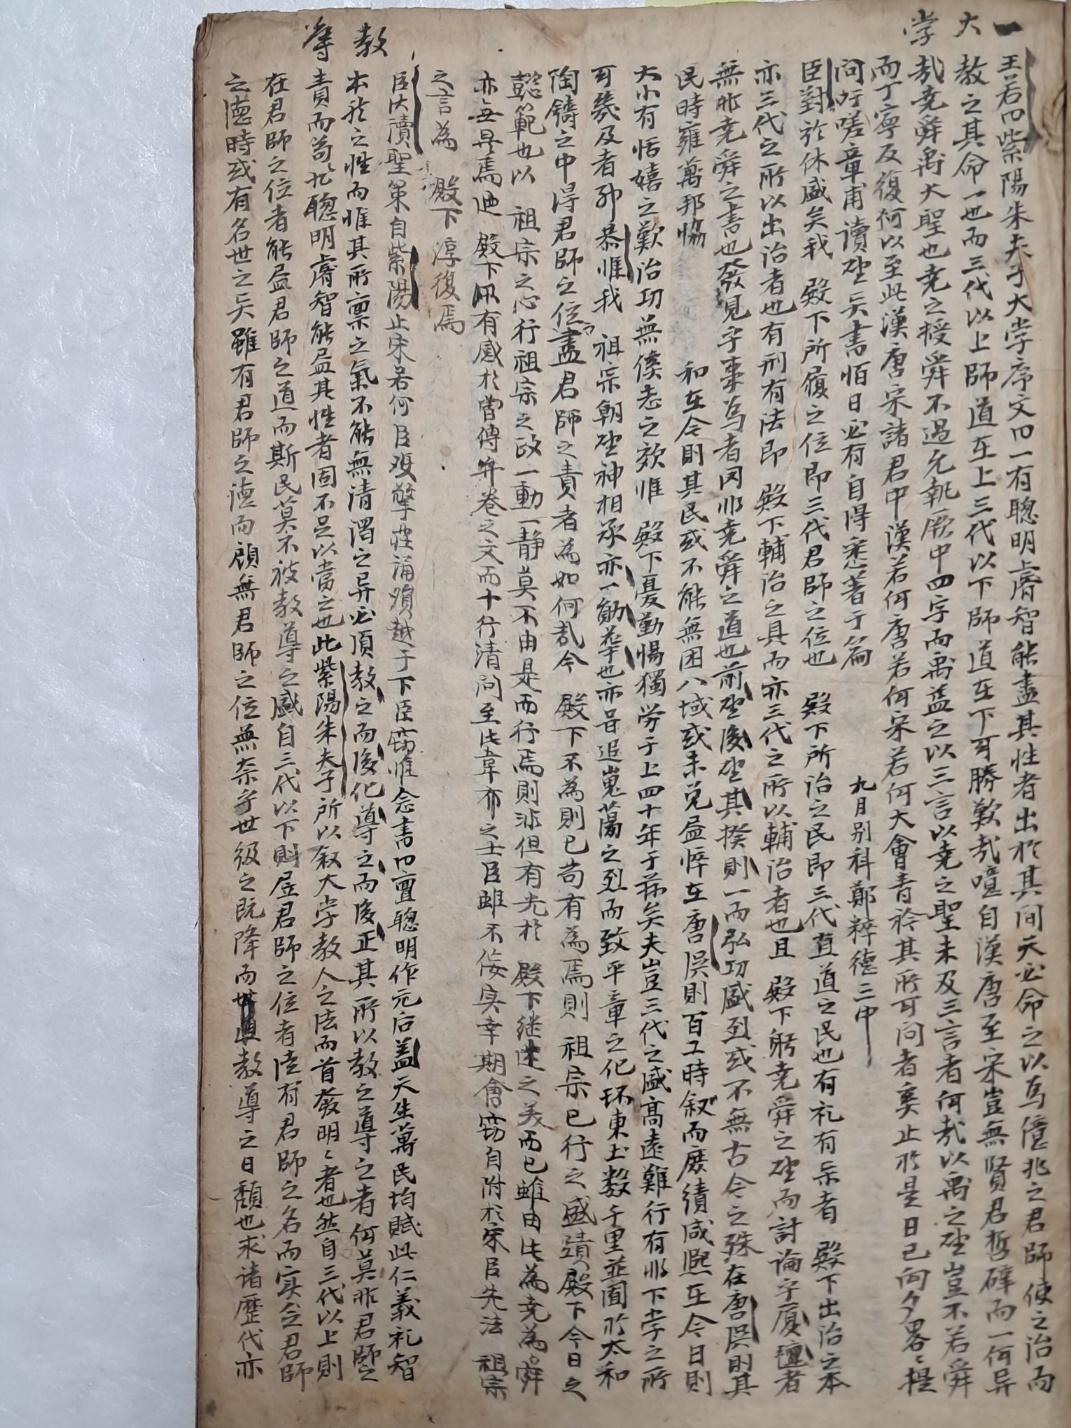 一大学
王若曰紫陽朱夫子大学序文曰一有聰明睿智能盡其性者出於其间天必命之以為億兆之君師使之治而
教之其命一也而三代以上師道在上三代以下師道在下可勝歎哉噫自漢唐至宋豈無賢君哲辟而一何异
哉堯舜禹大聖也堯之授舜不過允執厥中四字而禹益之以三言以堯之聖未及三言者何哉以禹之聖豈不若舜
而丁寧反復何以至此漢唐宋諸君中漢若何唐若何宋若何大會青衿其所可问者奚止於是日已向夕畧畧提
问吁嗟章甫讀聖贤書恒日必有自得悉著于篇
九月别科鄭粹德三中
臣對於休盛矣我 殿下所履之位即三代君師之位也 殿下所治之民即三代直道之民也有礼有乐者 殿下出治之本
亦三代之所以出治者也有刑有法即 殿下輔治之具而亦三代之所以輔治者也且 殿下躬堯舜之聖而討論乎厦氊者
無非堯舜之書也發見乎事為者罔非堯舜之道也前聖後聖其揆則一而弘功盛烈或不無古今之殊在唐虞則其
民時雍萬邦恊 和在今則其民或不能無困八域或未免盡悴在唐虞則百工時叙而庶績咸熙在今日則
大小有恬嬉之歎治功無優志之效惟 殿下憂勤惕獨勞于上四十年于茲矣夫豈三代之盛高遠難行有非下学之所
可幾及者耶恭惟我 祖宗朝聖神相承亦一勛華也亦旹追嵬蕩之烈而致平章之化环東土数千里並囿於太和
陶鑄之中淂君師之位盡君師之責者為如何哉今 殿下不為則已苟有為焉則 祖宗已行之盛蹟殿下今日之
懿範也以 祖宗之心行祖宗之政一動一静莫不由是而行焉則非但有光於 殿下继述之美而已雖由此為堯為舜
亦無异焉迺 殿下汛有感於當傳弁卷之文而十行清问至此韋布之士臣雖不佞实幸期會窃自附於宋臣先法 祖宗
之言為 殿下淳復焉
臣伏讀聖策自紫陽止宋若何臣双擎莊誦殞越于下臣窃惟念書曰亶聰明作元后盖天生萬民均賦此仁義礼智
本然之性而惟其所禀之氣不能無清濁之异必須教之而後化導之而後正其所以教之導之者何莫非君師之
責而苟非聰明睿智能盡其性者固不足以當之也此紫陽朱夫子所以叙大学教人之法而首發明之者也然自三代以上則
在君師之位者能盡君師之道而斯民莫不被教導之盛自三代以下則居君師之位者徒有君師之名而实乏君師
之德時或有名世之贤雖有君師之德而顧無君師之位無奈乎世级之既降而教導之日頽也求诸歷代亦
教導